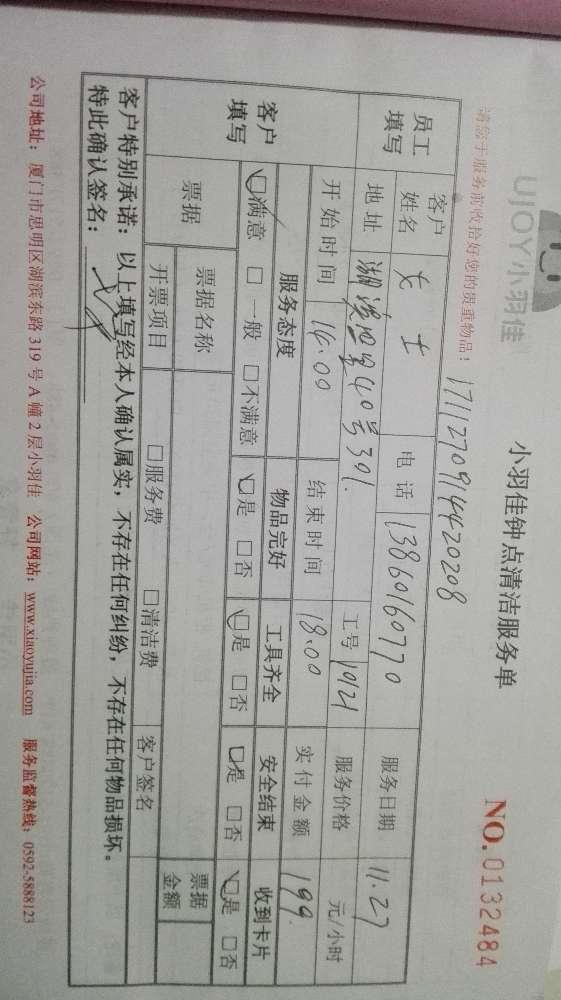 UJOY小羽佳
小羽佳钟点清洁服务单
NO.0132484
请您于服务前收拾好您的贵重物品！
17112709144420208
员工填写
客户姓名 女士 电话 13860160770 服务日期 11.27
地址 湖滨四里40号301. 工号 1921 服务价格 元/小时
开始时间 14.00 结束时间 18.00 实付金额 199.
客户填写
服务态度 物品完好 工具齐全 安全结束 收到卡片
☑满意 □一般 □不满意 ☑是 □否 ☑是 □否 ☑是 □否 ☑是 □否
票据 票据名称 票据金额
开票项目 □服务费 □清洁费 客户签名
客户特别承诺：以上填写经本人确认属实，不存在任何纠纷，不存在任何物品损坏。
特此确认签名：
公司地址：厦门市思明区湖滨东路 319 号 A 幢 2 层小羽佳 公司网站：www.xiaoyujia.com 服务监督热线：0592-5888123